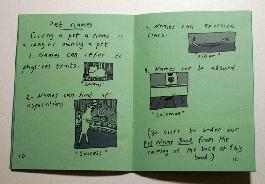 Pet names
Giving a pet a name is
a way of owning a pet
1. Names can refer to
physical traits.
2. Names can hint at
aspirations
"Success"
10
3. Names can exorcise
fears.
4. Names can be absurd
(Be sure to order our
Pet Name Book from the
catalog at the back of this
book.)
11